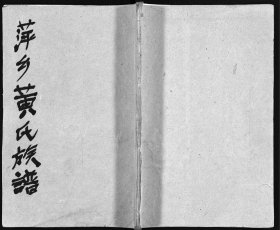 萍乡黄氏族譜